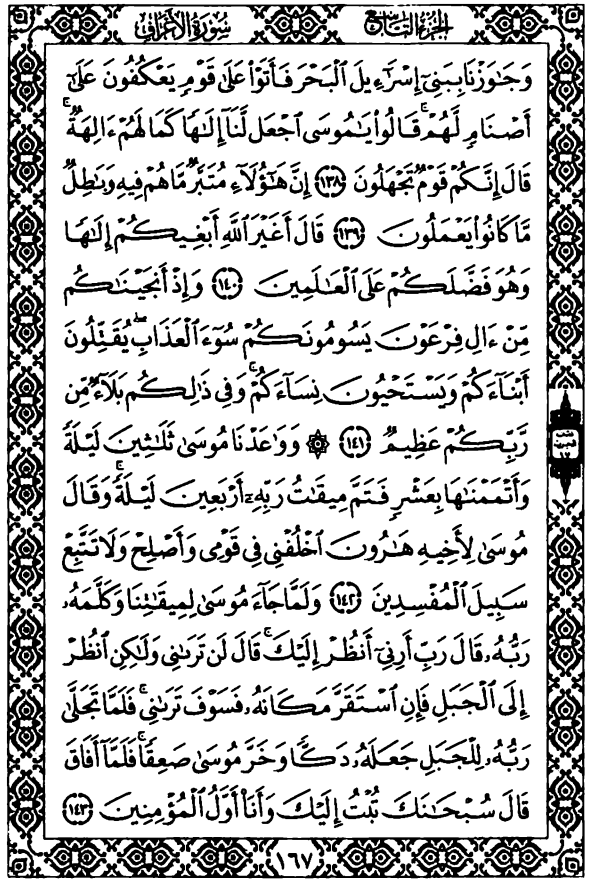 سورة الأعراف
الجزء التاسع
وَجَٰوَزْنَا بِبَنِىٓ إِسْرَٰٓءِيلَ ٱلْبَحْرَ فَأَتَوْا۟ عَلَىٰ قَوْمٍ يَعْكُفُونَ عَلَىٰٓ
أَصْنَامٍ لَّهُمْ ۚ قَالُوا۟ يَٰمُوسَى ٱجْعَل لَّنَآ إِلَٰهًا كَمَا لَهُمْ ءَالِهَةٌ ۚ
قَالَ إِنَّكُمْ قَوْمٌ تَجْهَلُونَ ١٣٨ إِنَّ هَٰٓؤُلَآءِ مُتَبَّرٌ مَّا هُمْ فِيهِ وَبَٰطِلٌ
مَّا كَانُوا۟ يَعْمَلُونَ ١٣٩ قَالَ أَغَيْرَ ٱللَّهِ أَبْغِيكُمْ إِلَٰهًا
وَهُوَ فَضَّلَكُمْ عَلَى ٱلْعَٰلَمِينَ ١٤٠ وَإِذْ أَنجَيْنَٰكُم
مِّنْ ءَالِ فِرْعَوْنَ يَسُومُونَكُمْ سُوٓءَ ٱلْعَذَابِ ۖ يُقَتِّلُونَ
أَبْنَآءَكُمْ وَيَسْتَحْيُونَ نِسَآءَكُمْ ۚ وَفِى ذَٰلِكُم بَلَآءٌ مِّن
رَّبِّكُمْ عَظِيمٌ ١٤١ ۞ وَوَٰعَدْنَا مُوسَىٰ ثَلَٰثِينَ لَيْلَةً
وَأَتْمَمْنَٰهَا بِعَشْرٍ فَتَمَّ مِيقَٰتُ رَبِّهِۦٓ أَرْبَعِينَ لَيْلَةً ۚ وَقَالَ
مُوسَىٰ لِأَخِيهِ هَٰرُونَ ٱخْلُفْنِى فِى قَوْمِى وَأَصْلِحْ وَلَا تَتَّبِعْ
سَبِيلَ ٱلْمُفْسِدِينَ ١٤٢ وَلَمَّا جَآءَ مُوسَىٰ لِمِيقَٰتِنَا وَكَلَّمَهُۥ
رَبُّهُۥ قَالَ رَبِّ أَرِنِىٓ أَنظُرْ إِلَيْكَ ۚ قَالَ لَن تَرَىٰنِى وَلَٰكِنِ ٱنظُرْ
إِلَى ٱلْجَبَلِ فَإِنِ ٱسْتَقَرَّ مَكَانَهُۥ فَسَوْفَ تَرَىٰنِى ۚ فَلَمَّا تَجَلَّىٰ
رَبُّهُۥ لِلْجَبَلِ جَعَلَهُۥ دَكًّا وَخَرَّ مُوسَىٰ صَعِقًا ۚ فَلَمَّآ أَفَاقَ
قَالَ سُبْحَٰنَكَ تُبْتُ إِلَيْكَ وَأَنَا۠ أَوَّلُ ٱلْمُؤْمِنِينَ ١٤٣
١٦٧